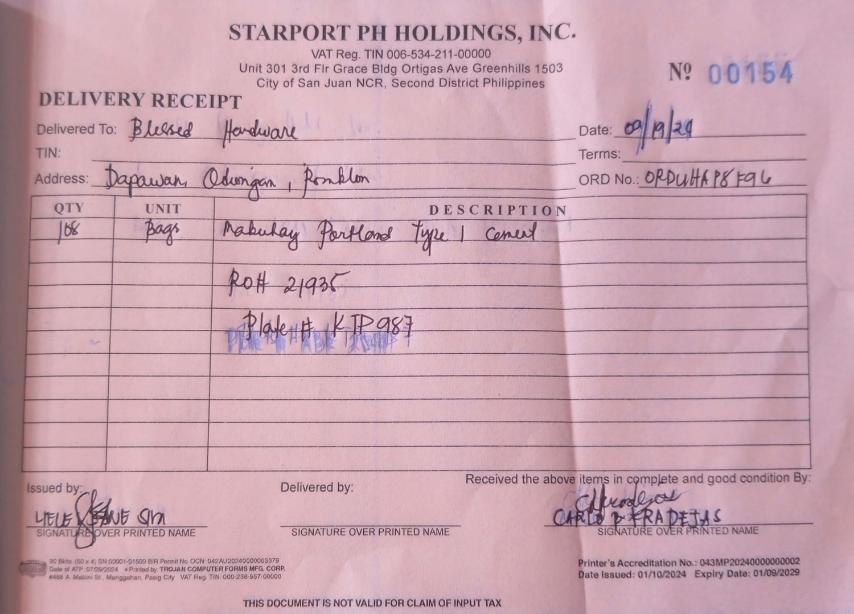 STARPORT PH HOLDINGS, INC.
VAT Reg. TIN 006-534-211-00000
Unit 301 3rd Flr Grace Bldg Ortigas Ave Greenhills 1503
City of San Juan NCR, Second District Philippines
Nº 00154
DELIVERY RECEIPT
Delivered To: Blessed Hardware
Date: 09/19/24
TIN:
Terms:
Address: Dapawan, Odiongan, Romblon
ORD No.: ORDUHAP8F96
QTY UNIT DESCRIPTION
168 Bags Mabuhay Portland Type 1 Cement
RO# 21935
Plate # KIP987
Issued by:
Delivered by:
Received the above items in complete and good condition By:
SIGNATURE OVER PRINTED NAME
SIGNATURE OVER PRINTED NAME
CARLO D FRADEJAS
SIGNATURE OVER PRINTED NAME
Printed by: TROJAN COMPUTER FORMS MFG. CORP.
Printer's Accreditation No.: 043MP20240000000002
Date Issued: 01/10/2024 Expiry Date: 01/09/2029
THIS DOCUMENT IS NOT VALID FOR CLAIM OF INPUT TAX